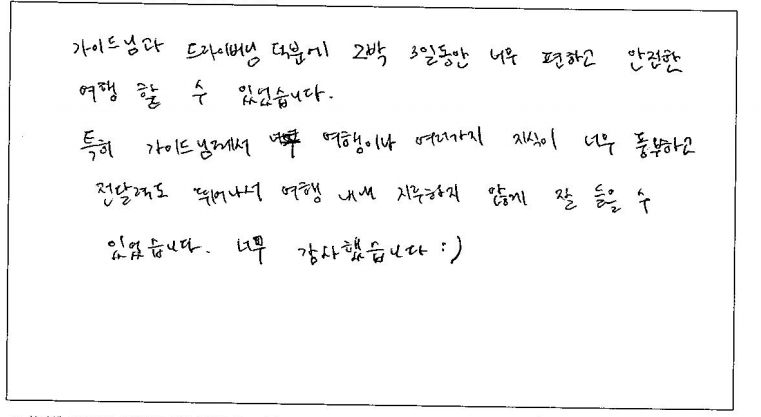 가이드님과 드라이버님 덕분에 2박 3일동안 너무 편하고 안전한
여행 할 수 있었습니다.
특히 가이드님께서 여행이나 여러가지 지식이 너무 풍부하고
전달력도 뛰어나서 여행 내내 지루하지 않게 잘 들을 수
있었습니다. 너무 감사했습니다 :)